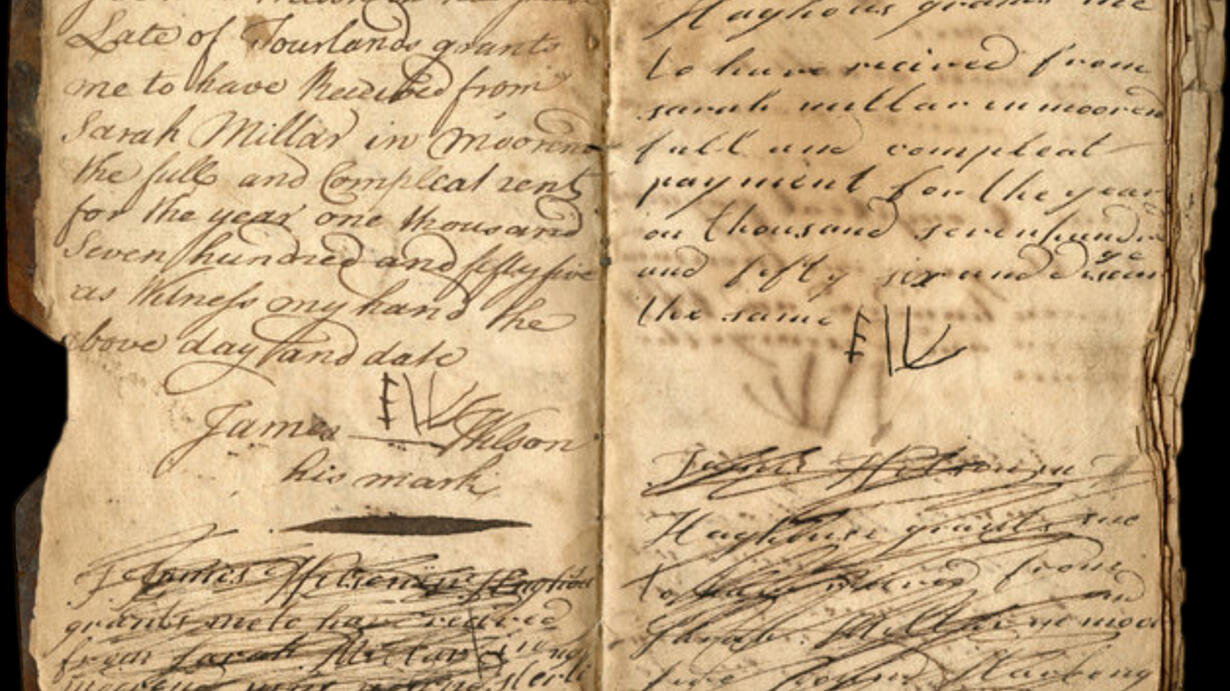 Late of Tourlands grants
me to have Received from
Sarah Millar in mooren
the full and Compleat rent
for the year one thousand
Seven hundred and fiftyfive
as Witness my hand the
above day and date
James Wilson
his mark
I James Wilson in Haghous
grants me to have receive
from Sarah Millar
Haghous grants me
to have recived from
sarah millar in mooren
full and compleat
payment for the year
on thousand seven hundre
and fifty six and
the same
James Wilson in
Haghouse grants me
to have receved from
Sarah Millar in moor
five pound